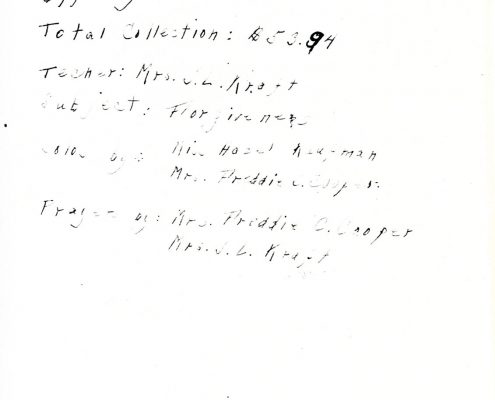 Total Collection: $53.94
Techer: Mrs. J.L. Kraft
Subject: Florgiveness
by: Miss Hazel Kaufman
Mrs. Freddie C. Cooper
Prayer by: Mrs. Freddie C. Cooper
Mrs. J. L. Kraft